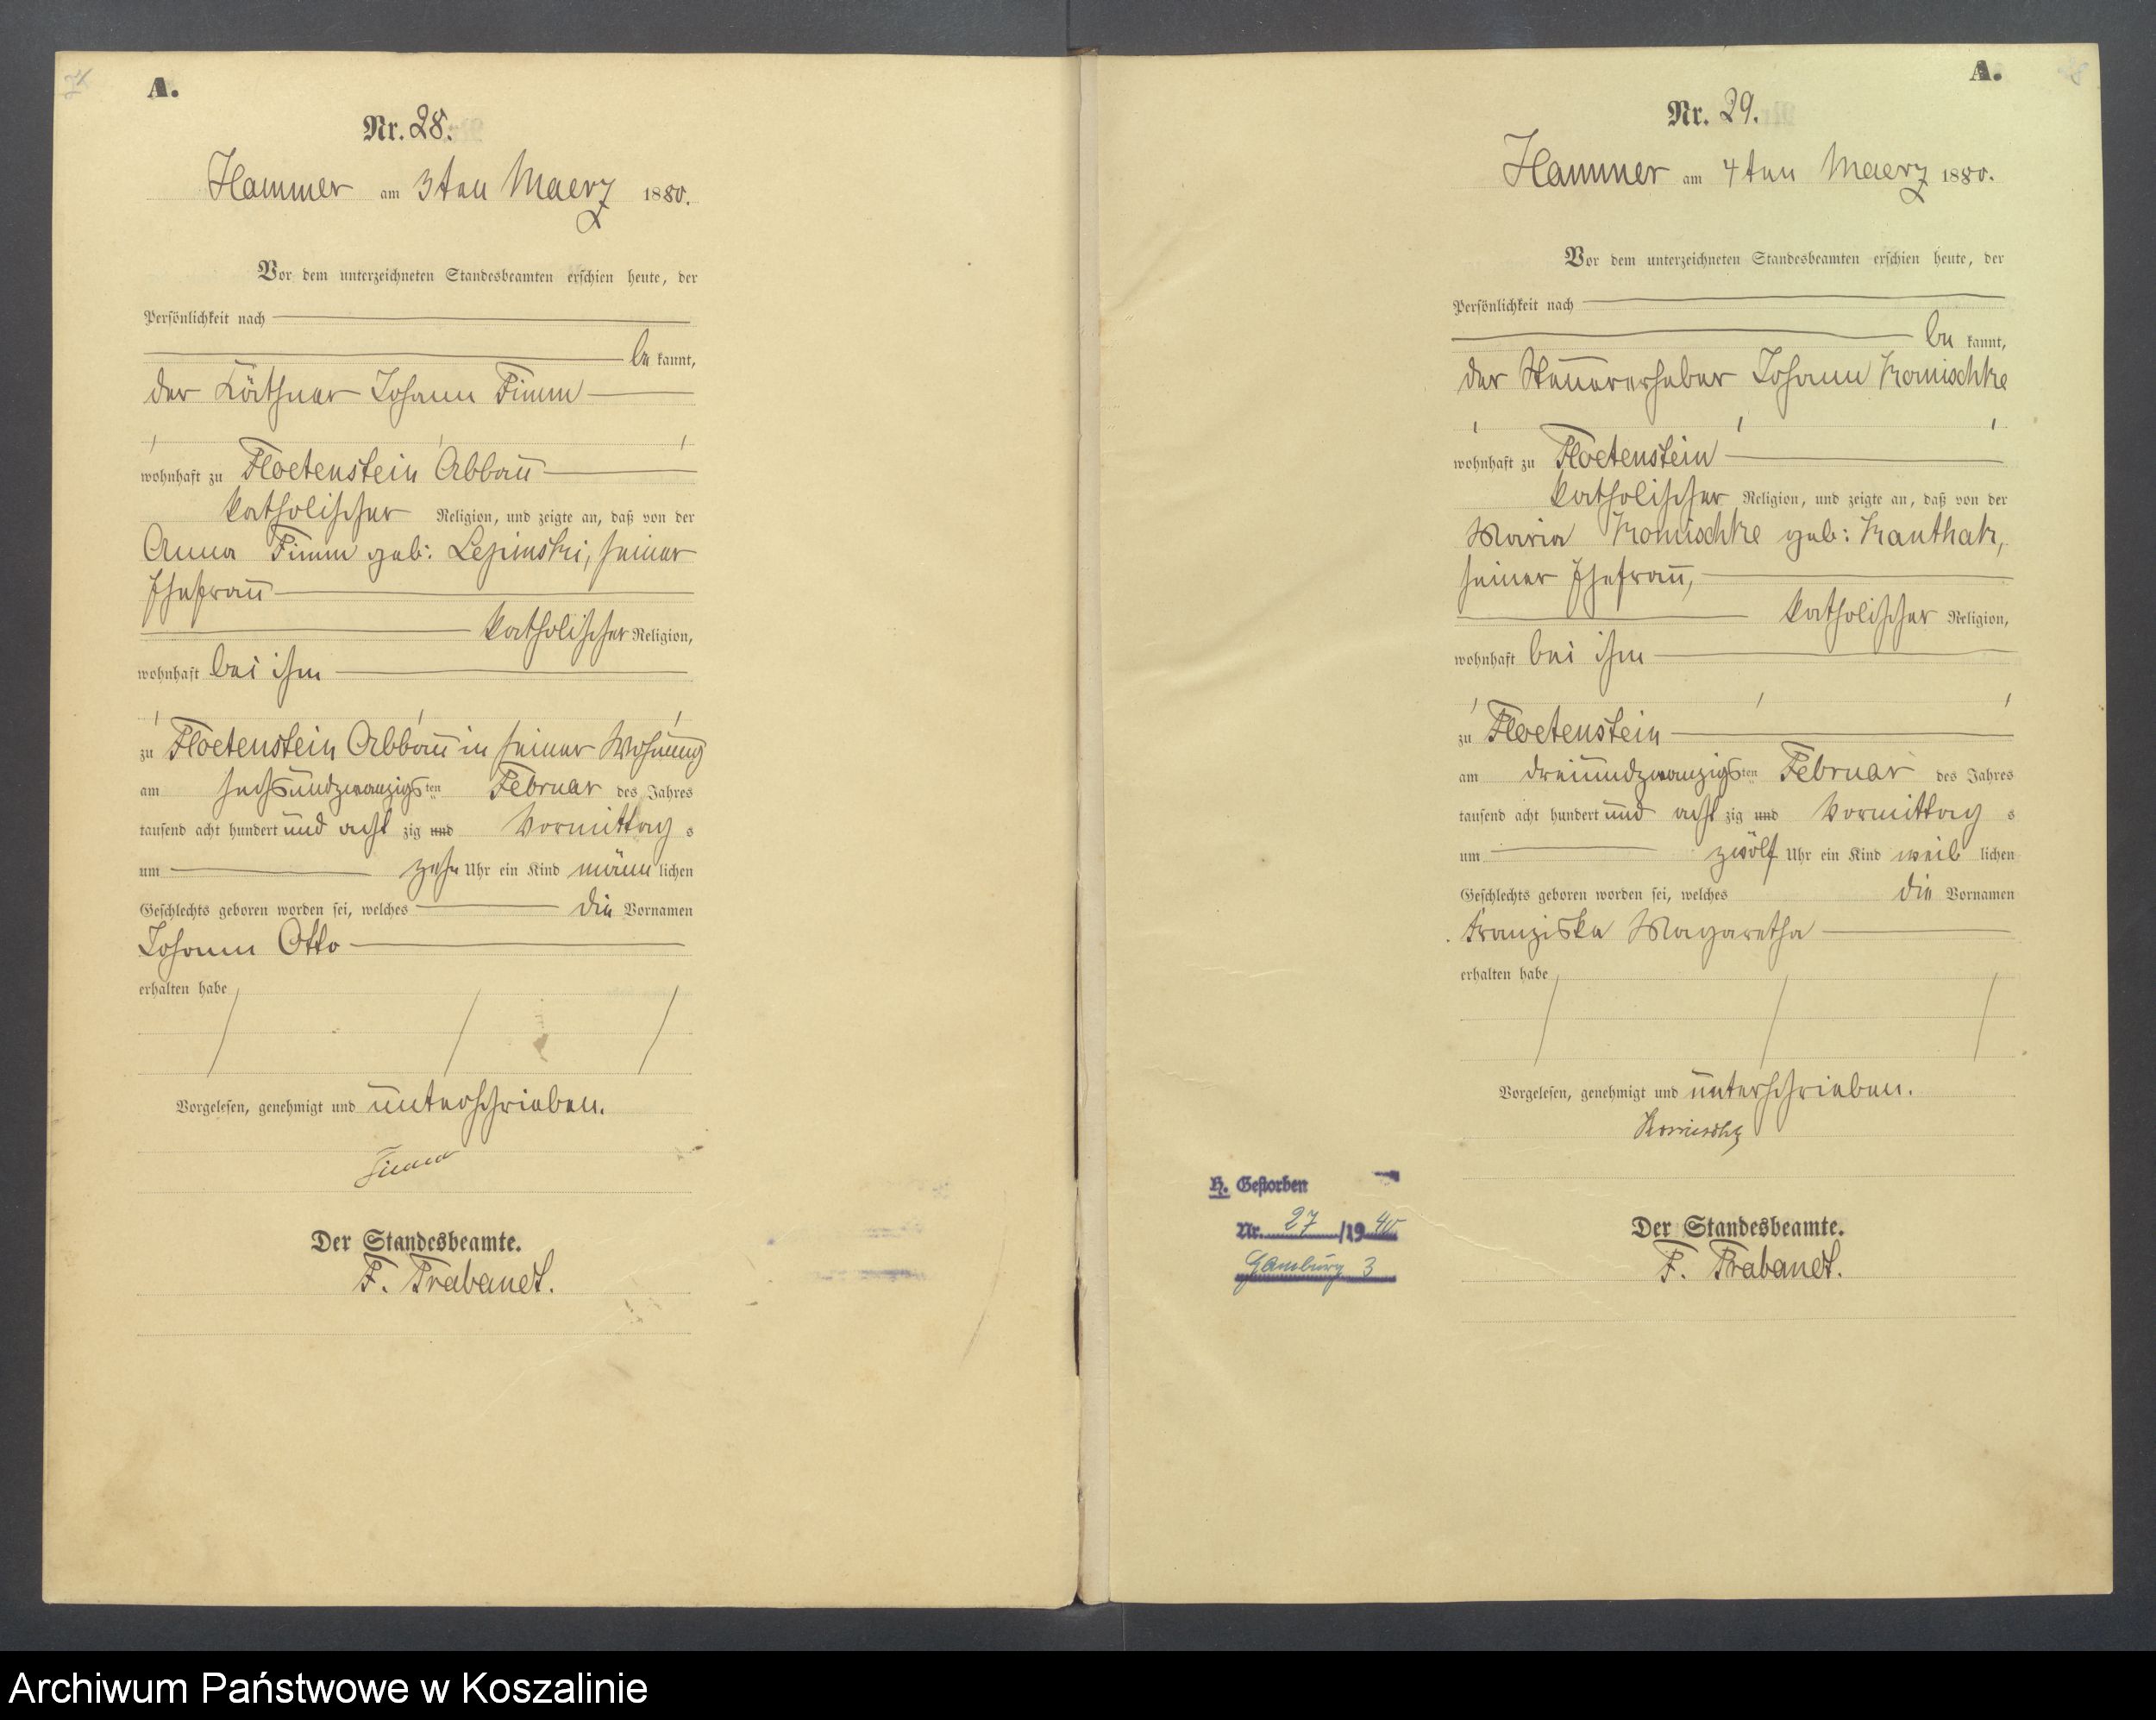 A.
Nr. 28.
Hammer am 3ten Maerz 1880.
Vor dem unterzeichneten Standesbeamten erschien heute, der
Persönlichkeit nach
be kannt,
der Käthner Johann Timm
wohnhaft zu Floetenstein Abbau
katholischer Religion, und zeigte an, daß von der
Anna Timm geb: Lepinski, seiner
Ehefrau
katholischer Religion,
wohnhaft bei ihm
zu Floetenstein Abbau in seiner Wohnung
am sechsundzwanzigsten Februar des Jahres
tausend acht hundert und acht zig und Vormittag s
um zehn Uhr ein Kind männ lichen
Geschlechts geboren worden sei, welches die Vornamen
Johann Otto
erhalten habe
Vorgelesen, genehmigt und unterschrieben.
Timm
Der Standesbeamte.
F. Trabandt.
A.
Nr. 29.
Hammer am 4ten Maerz 1880.
Vor dem unterzeichneten Standesbeamten erschien heute, der
Persönlichkeit nach
be kannt,
der Steuererheber Johann Komischke
wohnhaft zu Floetenstein
katholischer Religion, und zeigte an, daß von der
Maria Komischke geb: Kanthak,
seiner Ehefrau,
katholischer Religion,
wohnhaft bei ihm
zu Floetenstein
am dreiundzwanzigsten Februar des Jahres
tausend acht hundert und acht zig und Vormittag s
um zwölf Uhr ein Kind weib lichen
Geschlechts geboren worden sei, welches die Vornamen
Franziska Magaretha
erhalten habe
Vorgelesen, genehmigt und unterschrieben.
Komischke
H. Gestorben
Nr. 27/1940
Hamburg 3
Der Standesbeamte.
F. Trabandt.
Archiwum Państwowe w Koszalinie